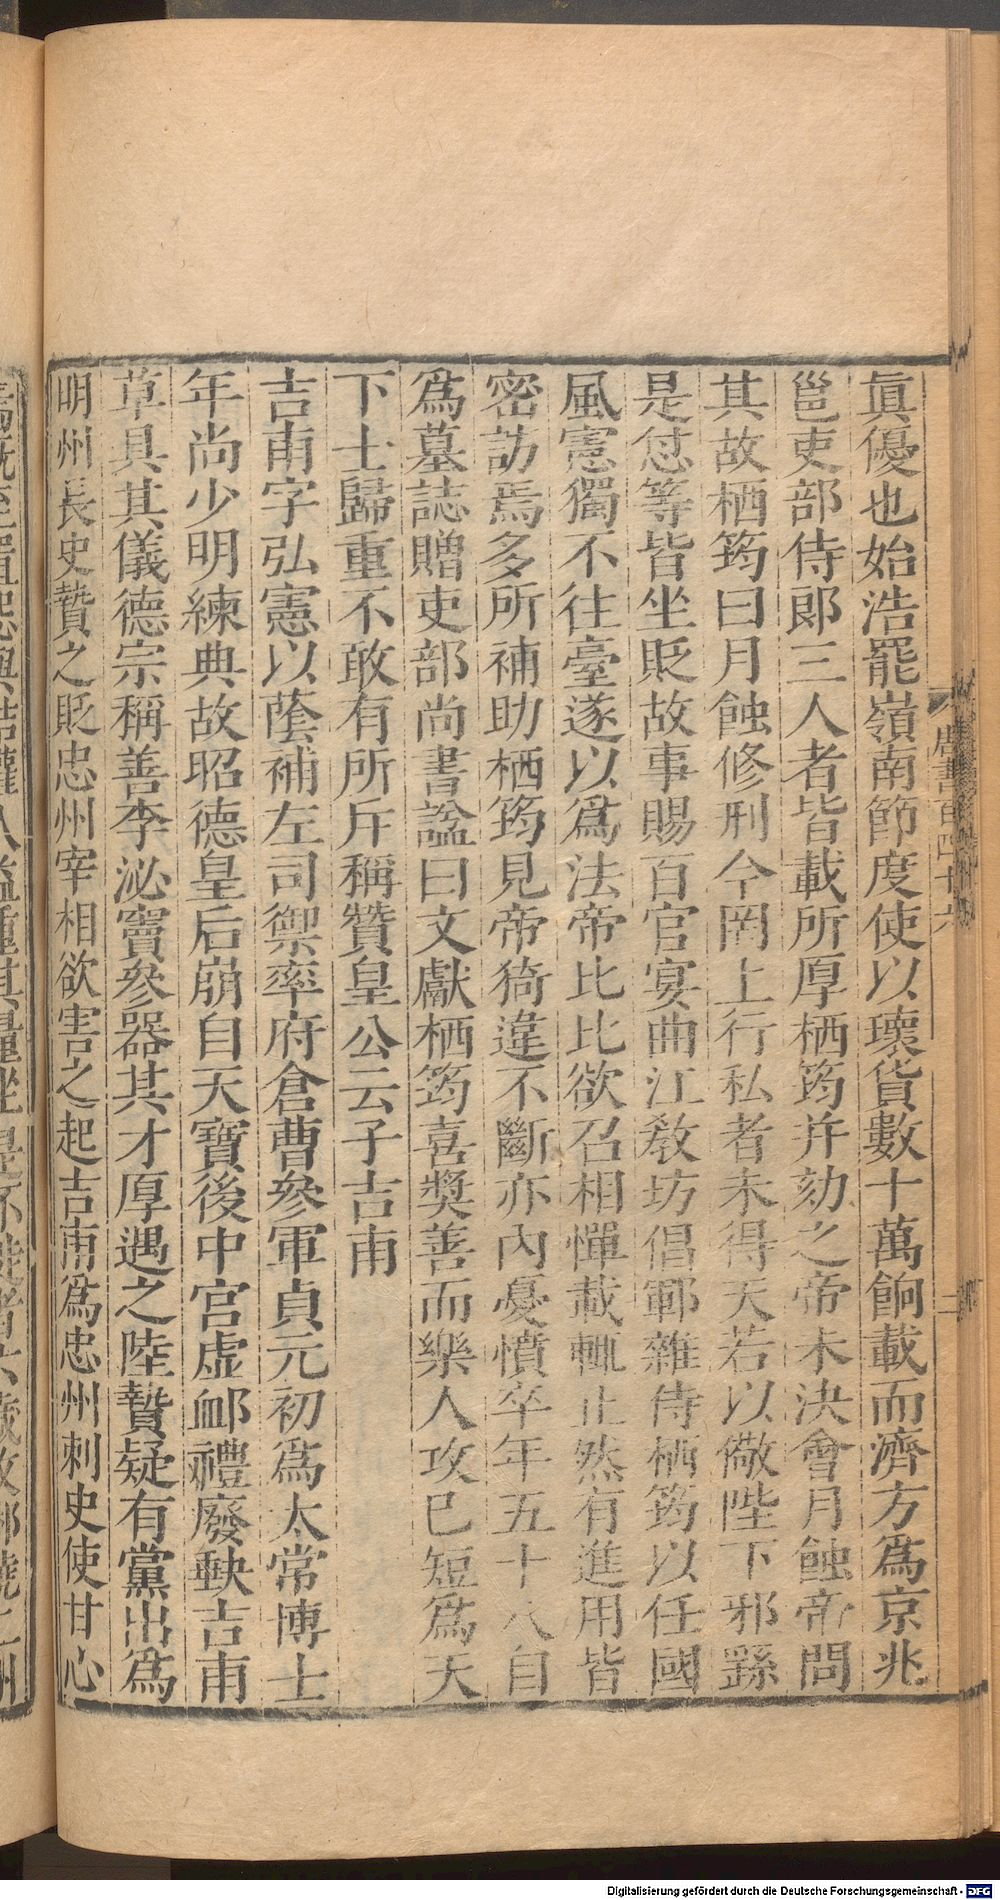 眞優也始浩罷嶺南節度使以壞貨數十萬餉載而濟方爲京兆
邕吏部侍郎三人者皆載所厚栖筠并劾之帝未決會月蝕帝問
其故栖筠曰月蝕修刑今罔上行私者未得天若以儆陛下邪繇
是怤等皆坐貶故事賜百官宴曲江敎坊倡鄆雜侍栖筠以任國
風憲獨不往臺遂以爲法帝比比欲召相憚載輒止然有進用皆
密訪焉多所補助栖筠見帝猗違不斷亦內憂憤卒年五十八自
爲墓誌贈吏部尚書諡曰文獻栖筠喜奬善而樂人攻已短爲天
下士歸重不敢有所斥稱贊皇公云子吉甫
吉甫字弘憲以蔭補左司禦率府倉曹參軍貞元初爲太常博士
年尚少明練典故昭德皇后崩自天寶後中宮虛䘏禮廢缺吉甫
草具其儀德宗稱善李泌竇參器其才厚遇之陸贄疑有黨出爲
明州長史贄之貶忠州宰相欲害之起吉甫爲忠州刺史使甘心
唐書百四十六
二
Digitalisierung gefördert durch die Deutsche Forschungsgemeinschaft - DFG